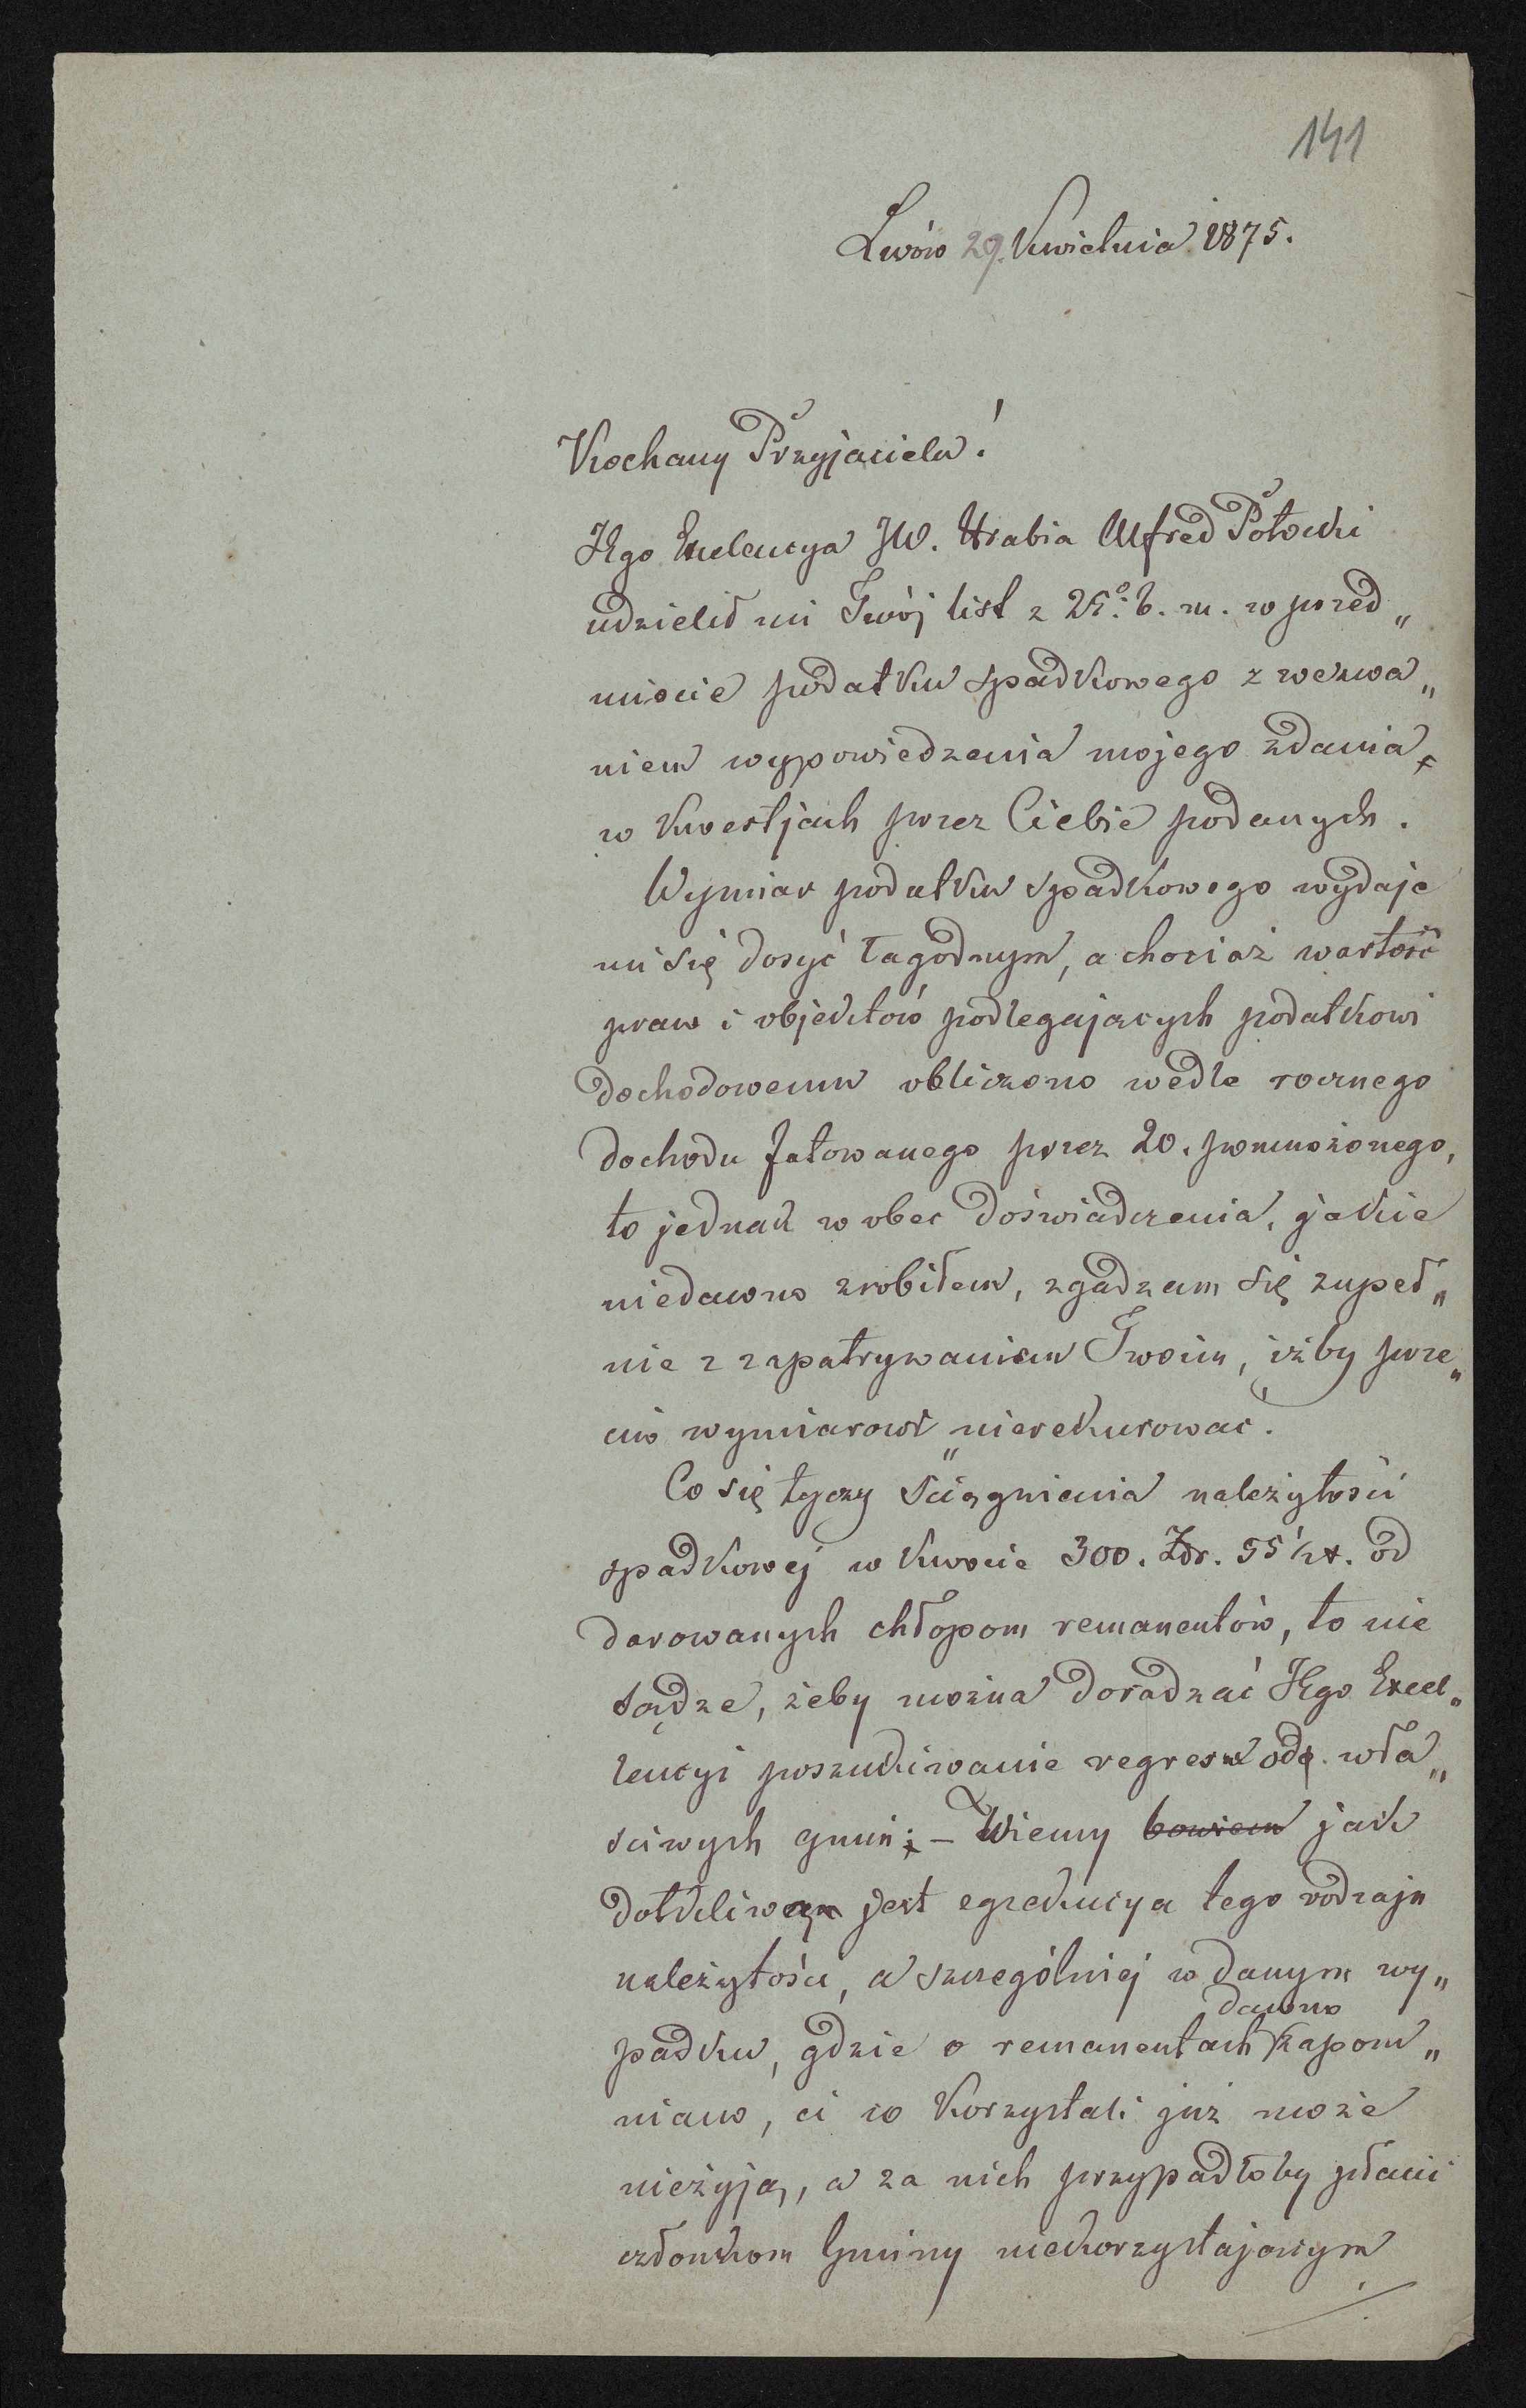 141
Lwów 29. Kwietnia 1875.
Kochany Przyjacielu!
JEgo Excelencya JW. Hrabia Alfred Potocki
udzielił mi Twój list z 25º: b. m. w przed„
miocie podatku spadkowego z wezwa„
niem wypowiedzenia mojego zdania
w kwestjach przez Ciebie podanych.
Wymiar podatku spadkowego wydaje
mi się dosyć łagodnym, a chociaż wartość
praw i objektów podlegających podatkowi
dochodowemu obliczono wedle rocznego
dochodu fatowanego przez 20. pomnożonego,
to jednak wobec doświadczenia, jakie
niedawno zrobiłem, zgadzam się zupeł„
nie z zapatrywaniem Twoim, iżby prze„
ciw wymiarowi nierekurować.
Co się tyczy ściągnienia należytości
spadkowej w kwocie 300. Złr. 55 ½. od
darowanych chłopom remanentów, to nie
sądzę, żeby można doradzać JEgo Excel„
lencyi poszukiwanie regresu od wła„
ściwych gmin; – Wiemy bowiem jak
dotkliwą jest egzekucya tego rodzaju
należytości, a szczególniej w danym wy„
dawno
padku, gdzie o remanentach zapom„
niano, ci co korzystali już może
nieżyją, a za nich przypadłoby płacić
członkom Gminy niekorzystającym